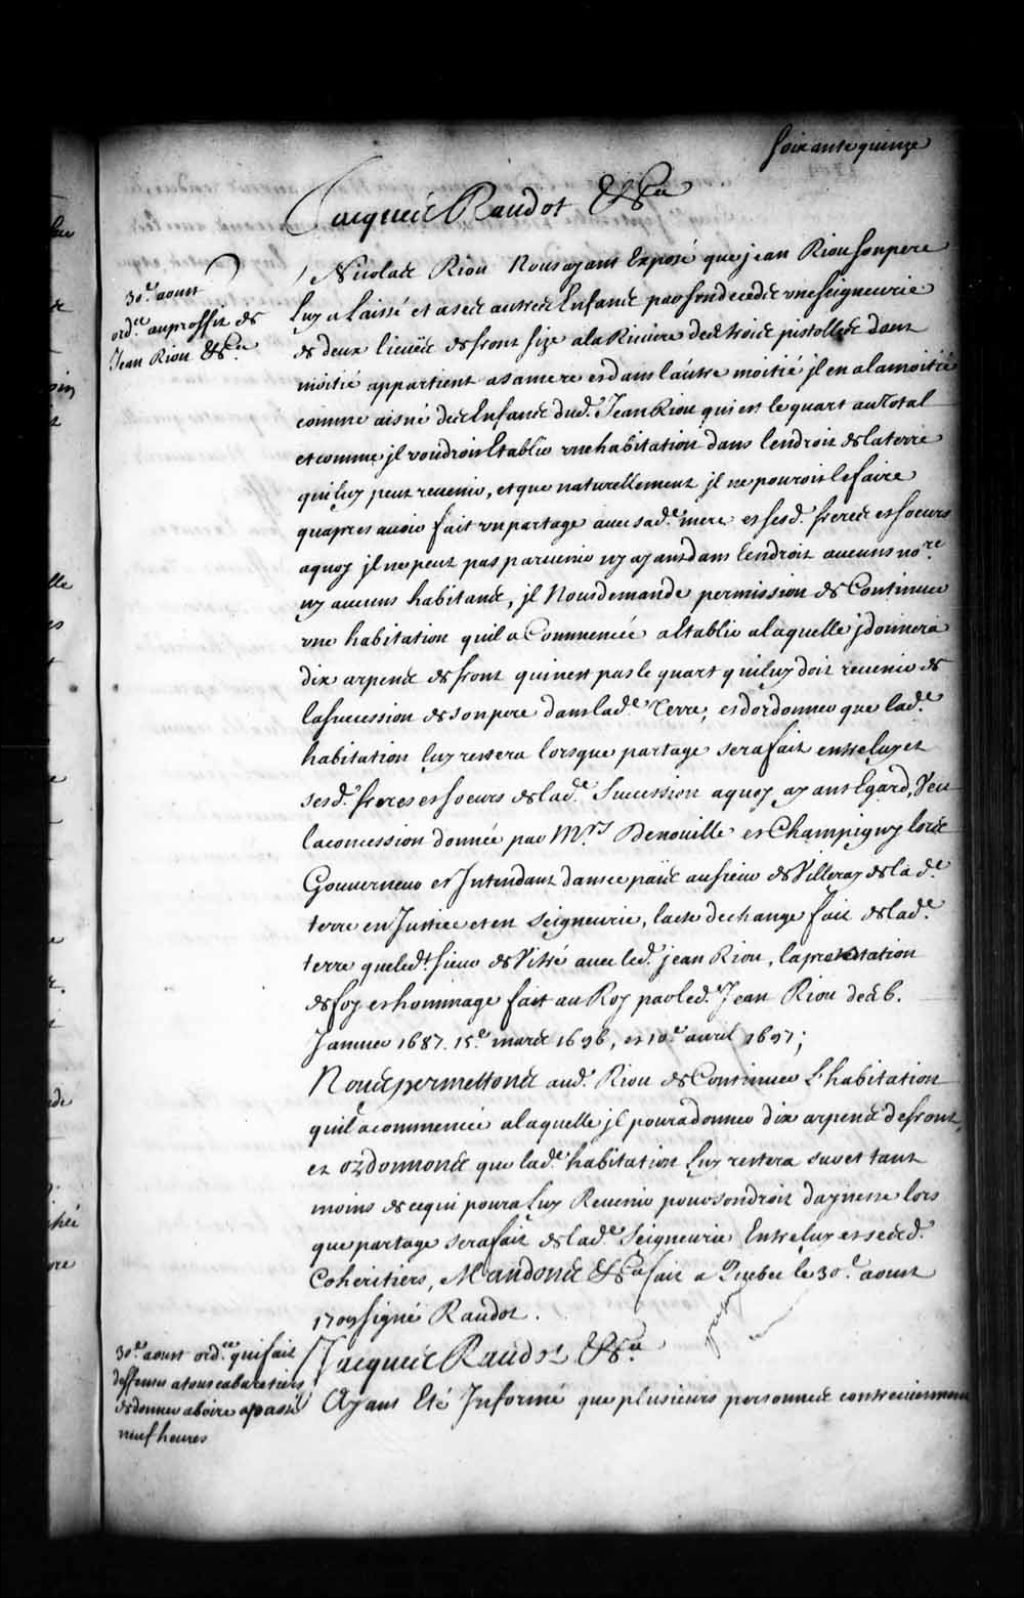 Soixante quinze
Jacques Raudot &ca
30e. aoust
ordce. au proffit de
Jean Riou &ca.
Nicolas Riou Nous ayant Exposé que jean Riou son pere
luy a laissé et a ses autres Enfans par son deceds une seigneurie
de deux lieües de front size a la Riviere des trois pistolles dont
moitié appartient a sa mere et dans l'autre moitié jl en a la moitié
comme aisné des Enfans dud. Jean Riou qui est le quart au Total
et comme jl voudroit Establir une habitation dans l'endroit de la terre
qui luy peut revenir, et que naturellement jl ne pouroit le faire
qu'apres avoir fait un partage avec sa de. mere et ses d. freres et soeurs
a quoy jl ne peut pas parvenir n'y ayant dans l'endroit aucuns nore.
ny aucuns habitans, jl Nous demande permission de Continuer
une habitation qu'il a Commencée a Establir a laquelle jl donnera
dix arpens de front qui n'est pas le quart qui luy doit revenir de
la succession de son pere dans lade. Terre, et d'ordonner que lade.
habitation luy restera lorsque partage sera fait entre luy et
ses d. freres et soeurs de lade. Succession a quoy ayant Egard, Veu
la concession donnée par Mrs. Denonville et Champigny lors
Gouverneur et Jntendant dans ce païs au sieur de Villeray de la de.
terre en Justice et en seigneurie, l'acte d'echange fait de lade.
terre par led. sieur de Vitré avec led. jean Riou, la prestation
de foy et hommage fait au Roy par led. Jean Riou des 6.
Janvier 1687. 15e. mars 1696, et 10e. avril 1697;
Nous permettons aud. Riou de Continuer l'habitation
qu'il a commencée a laquelle jl poura donner dix arpens de front,
et ordonnons que lade. habitation luy restera sur et tant
moins de ce qui poura luy Revenir pour son droit d'aynesse lors
que partage sera fait de lade. Seigneurie Entre luy et ses d.
Coheritiers, Mandons &ca fait a Quebec le 30e. aoust
1709 signé Raudot.
30e. aoust ordce. qui fait
deffenses a tous cabaretiers
de donner a boire apassé
neuf heures
Jacques Raudot &ca.
Ayant Eté Jnformé que plusieurs personnes contreviennent